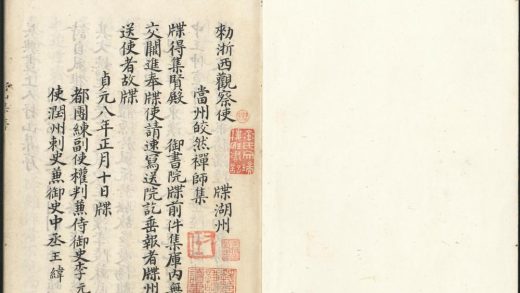 勑浙西觀察使 牒湖州
當州皎然禪師集
牒得集賢殿 御書院牒前件集庫內無
交闕進奉牒使請速寫送院訖垂報者牒州
送使者故牒
貞元八年正月十日牒
都團練副使權判兼侍御史李元
使潤州刺史兼御史中丞王緯